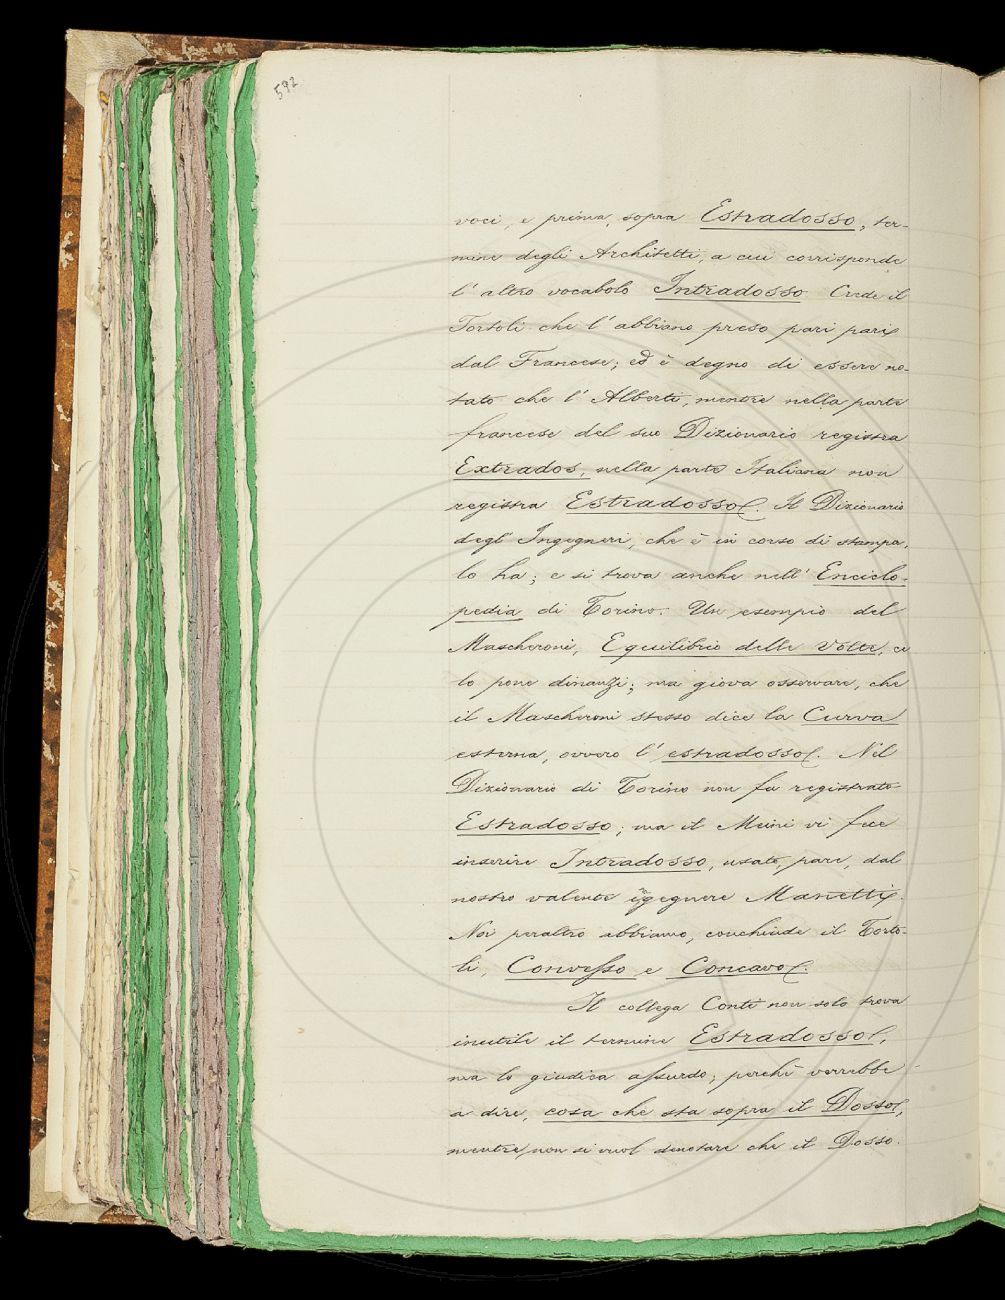 592
voci, e prima, sopra Estradosso, ter-
mine degli Architetti, a cui corrisponde
l'altro vocabolo Intradosso. Crede il
Tortoli che l'abbiano preso pari pari
dal Francese; ed è degno di essere no-
tato che l'Alberti, mentre nella parte
francese del suo Dizionario registra
Extrados, nella parte Italiana non
registra Estradosso. Il Dizionario
degl'Ingegneri, che è in corso di stampa,
lo ha; e si trova anche nell'Enciclo-
pedia di Torino. Un esempio del
Mascheroni, Equilibrio delle Volte, ce
lo pone dinanzi; ma giova osservare, che
il Mascheroni stesso dice la Curva
esterna, ovvero l'estradosso. Nel
Dizionario di Torino non fu registrato
Estradosso; ma il Meini vi fece
inserire Intradosso, usato, pare, dal
nostro valente ingegnere Manetti.
Noi peraltro abbiamo, conchiude il Torto-
li, Convesso e Concavo.
Il collega Conti non solo trova
inutile il termine Estradosso,
ma lo giudica assurdo; perchè verrebbe
a dire, cosa che sta sopra il Dosso,
mentre non si vuol denotare che il Dosso.